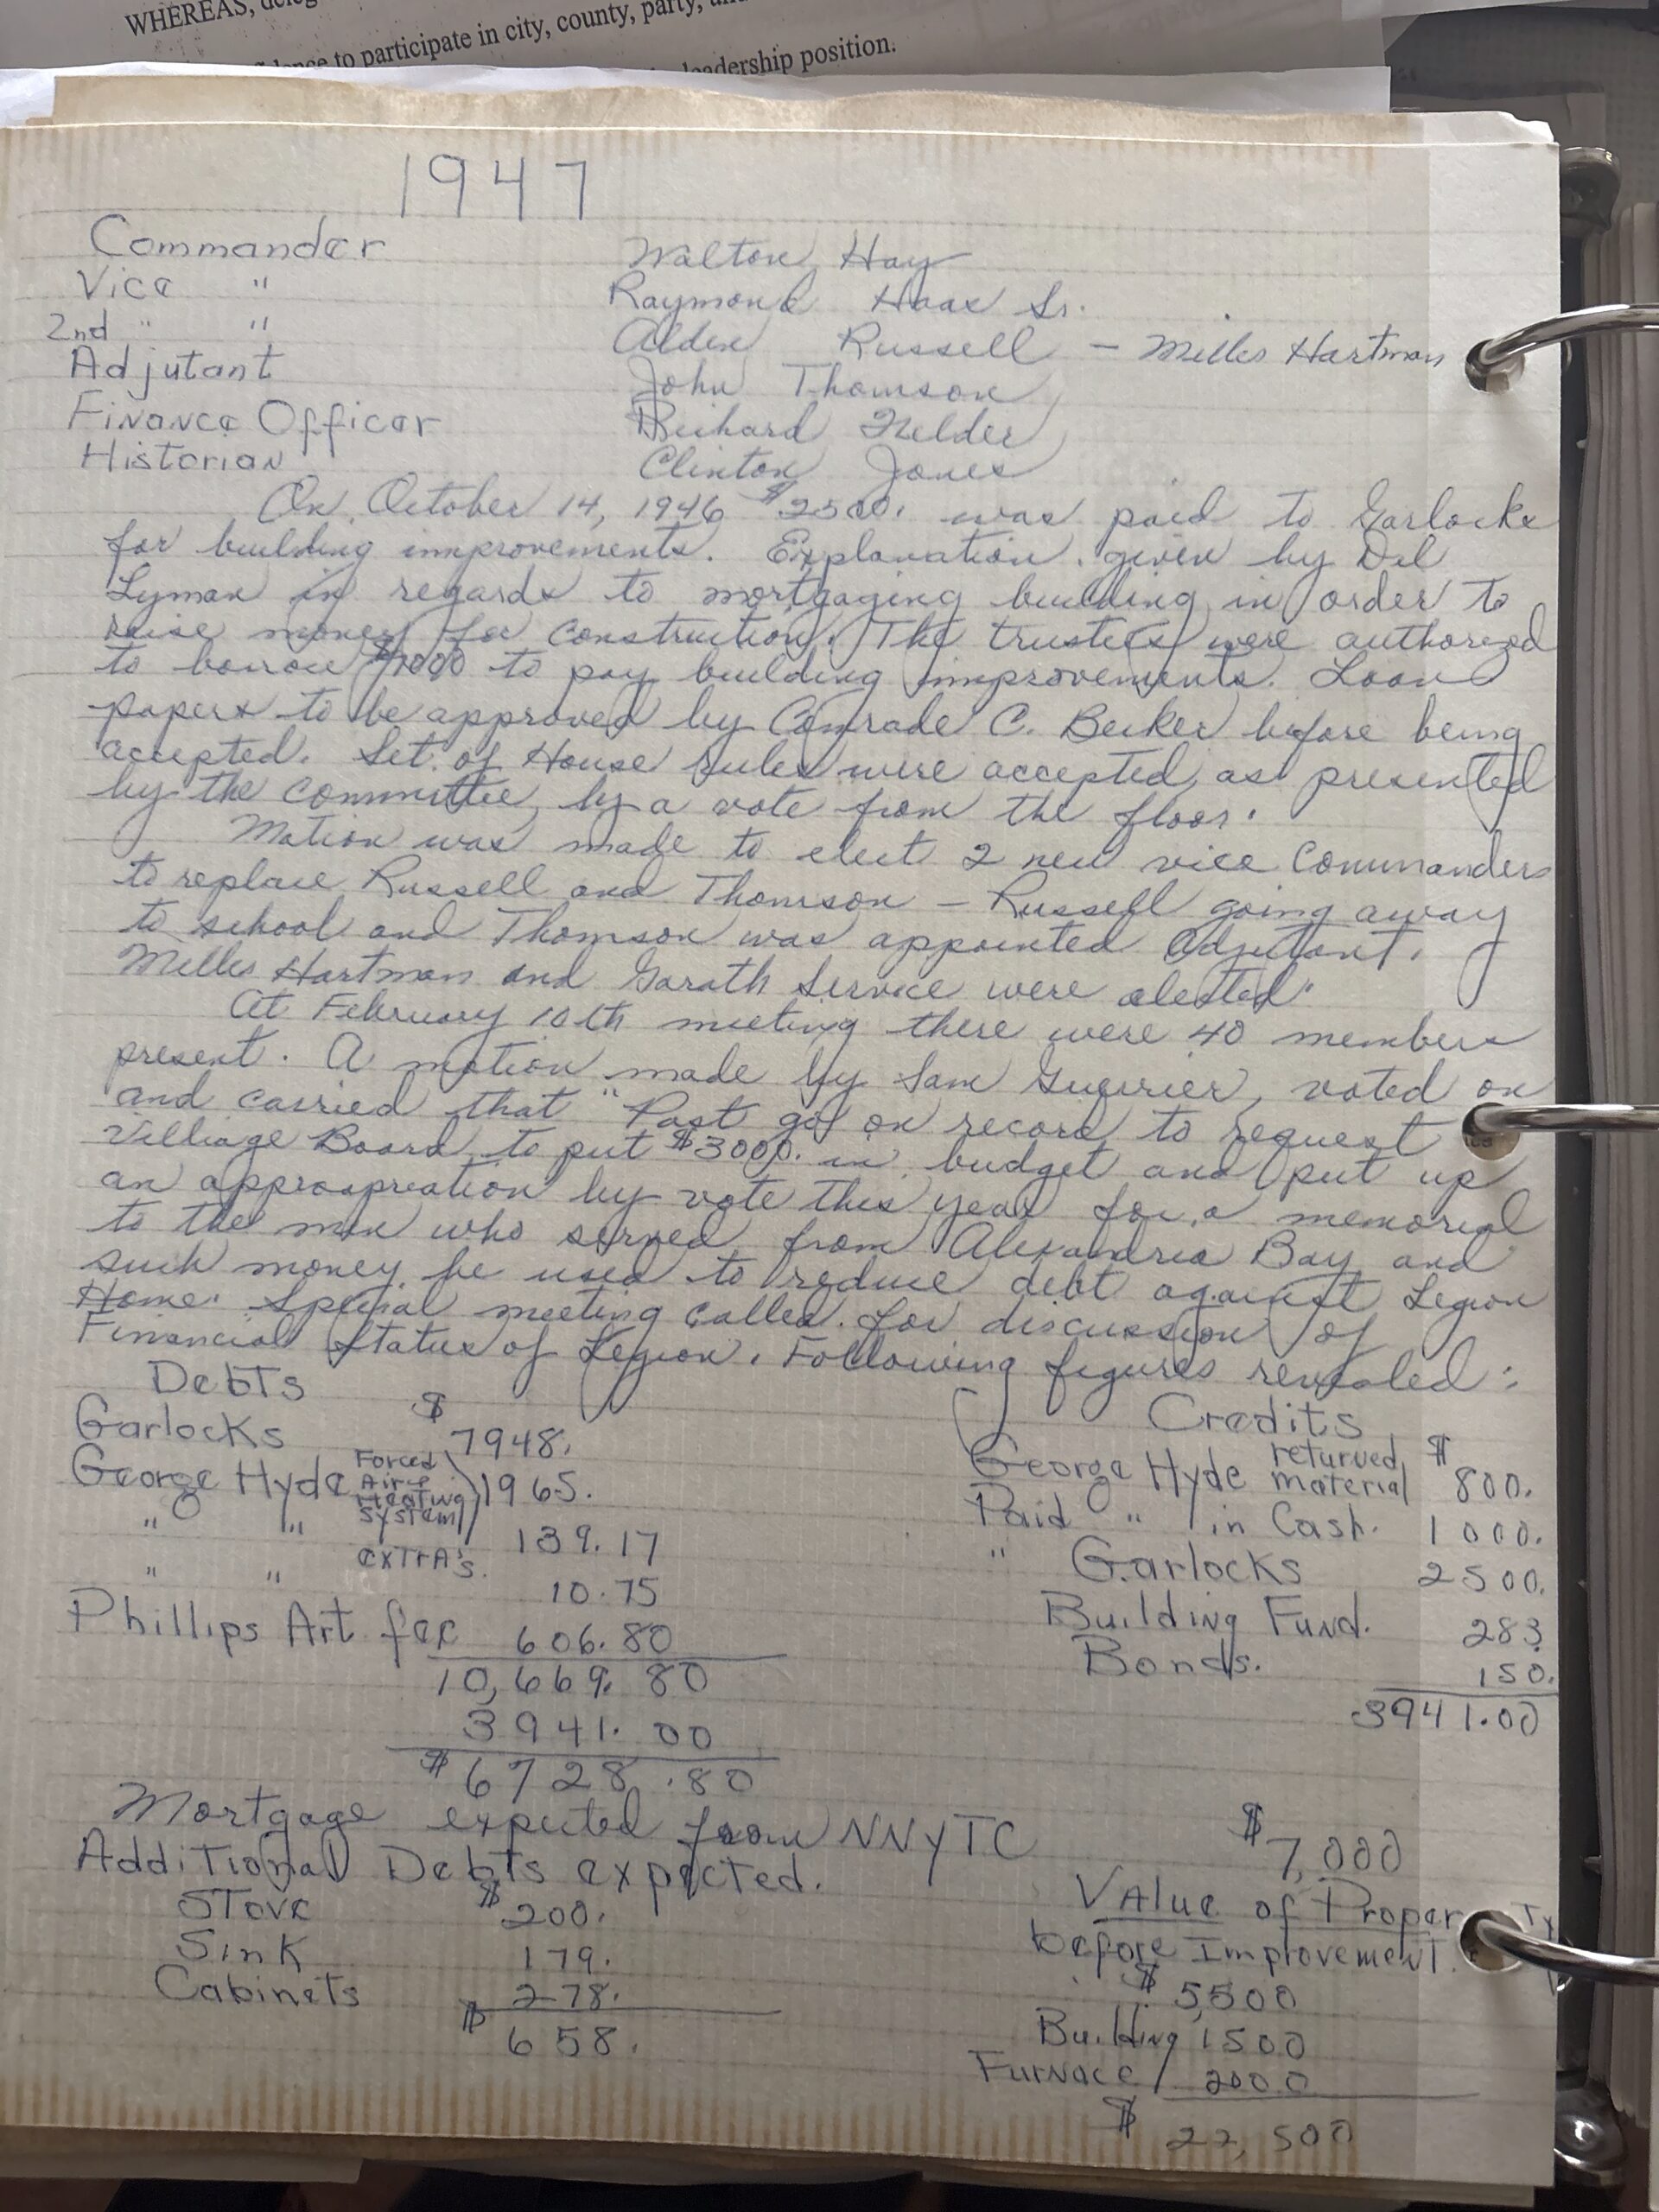 WHEREAS,
to participate in city, county, party,
leadership position.
1947
Commander Walton Hay
Vice " Raymond Haas Sr.
2nd " " Alden Russell - Milles Hartman
Adjutant John Thomson
Finance Officer Richard Fielder
Historian Clinton Jones
On October 14, 1946 $2500. was paid to Garlocks
for building improvements. Explanation given by Del
Lyman in regards to mortgaging building in order to
raise money for construction. The trustees were authorized
to borrow $7000 to pay building improvements. Loan
papers to be approved by Comrade C. Becker before being
accepted. Set of House rules were accepted, as presented
by the committee, by a vote from the floor.
Motion was made to elect 2 new vice Commanders
to replace Russell and Thomson - Russell going away
to school and Thomson was appointed Adjutant.
Milles Hartman and Garath Service were elected.
At February 10th meeting there were 40 members
present. A motion made by Sam Guerrier, voted on
and carried that "Post go on record to request
Villiage Board to put $3000. in budget and put up
an appropriation by vote this year for a memorial
to the men who served from Alexandria Bay and
such money be used to reduce debt against Legion
Home. Special meeting called for discussion of
Financial Status of Legion. Following figures revealed:
Debts
Garlocks $7948.
George Hyde Forced Air Heating System 1965.
" " 139.17
" " EXTRA's. 10.75
Phillips Art fee 606.80
10,669.80
3941.00
$6728.80
Credits
George Hyde returned material $800.
Paid " in Cash. 1000.
" Garlocks 2500.
Building Fund. 283.
Bonds. 150.
3941.00
Mortgage expected from NNYTC $7,000
Additional Debts expected.
Stove $200.
Sink 179.
Cabinets 278.
$658.
Value of Property
before Improvement.
$5,500
Building 1500
Furnace 2000
$22,500